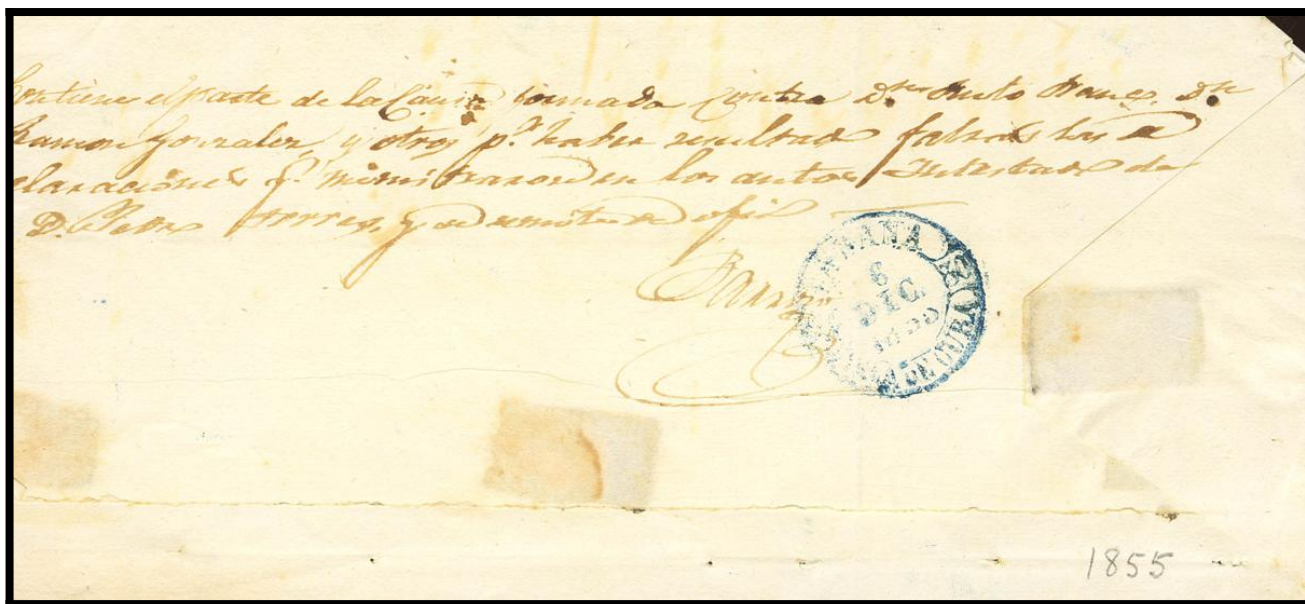 Contiene el parte de la Causa formada contra Dn.
Ramon Gonzalez, y otros p.r haber resultado falsas las
claraciones q.e ministraron en los autos Intestado de
D. Pedro Torres, y se remite de ofi.o
HABANA
6
DIC.
ISLA DE CUBA
1855